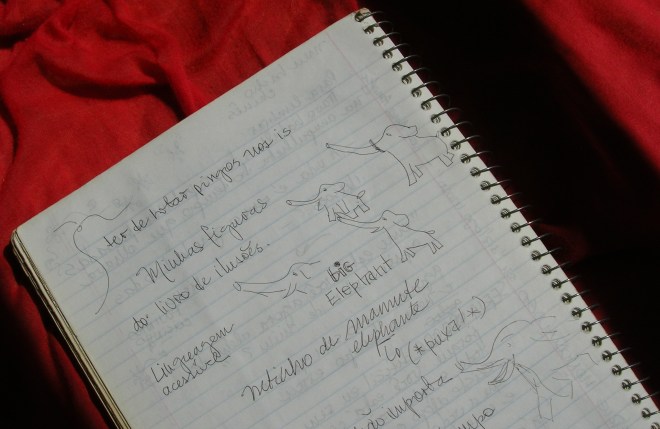 ter de botar pingos nos is
Minhas figuras
do livro de ilusões.
big
Elephant
Linguagem
acessível
netinho de mamute
elephante
(*puxa! :x)
não importa